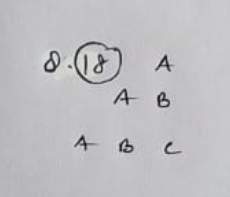 8. 18 A
A B
A B C